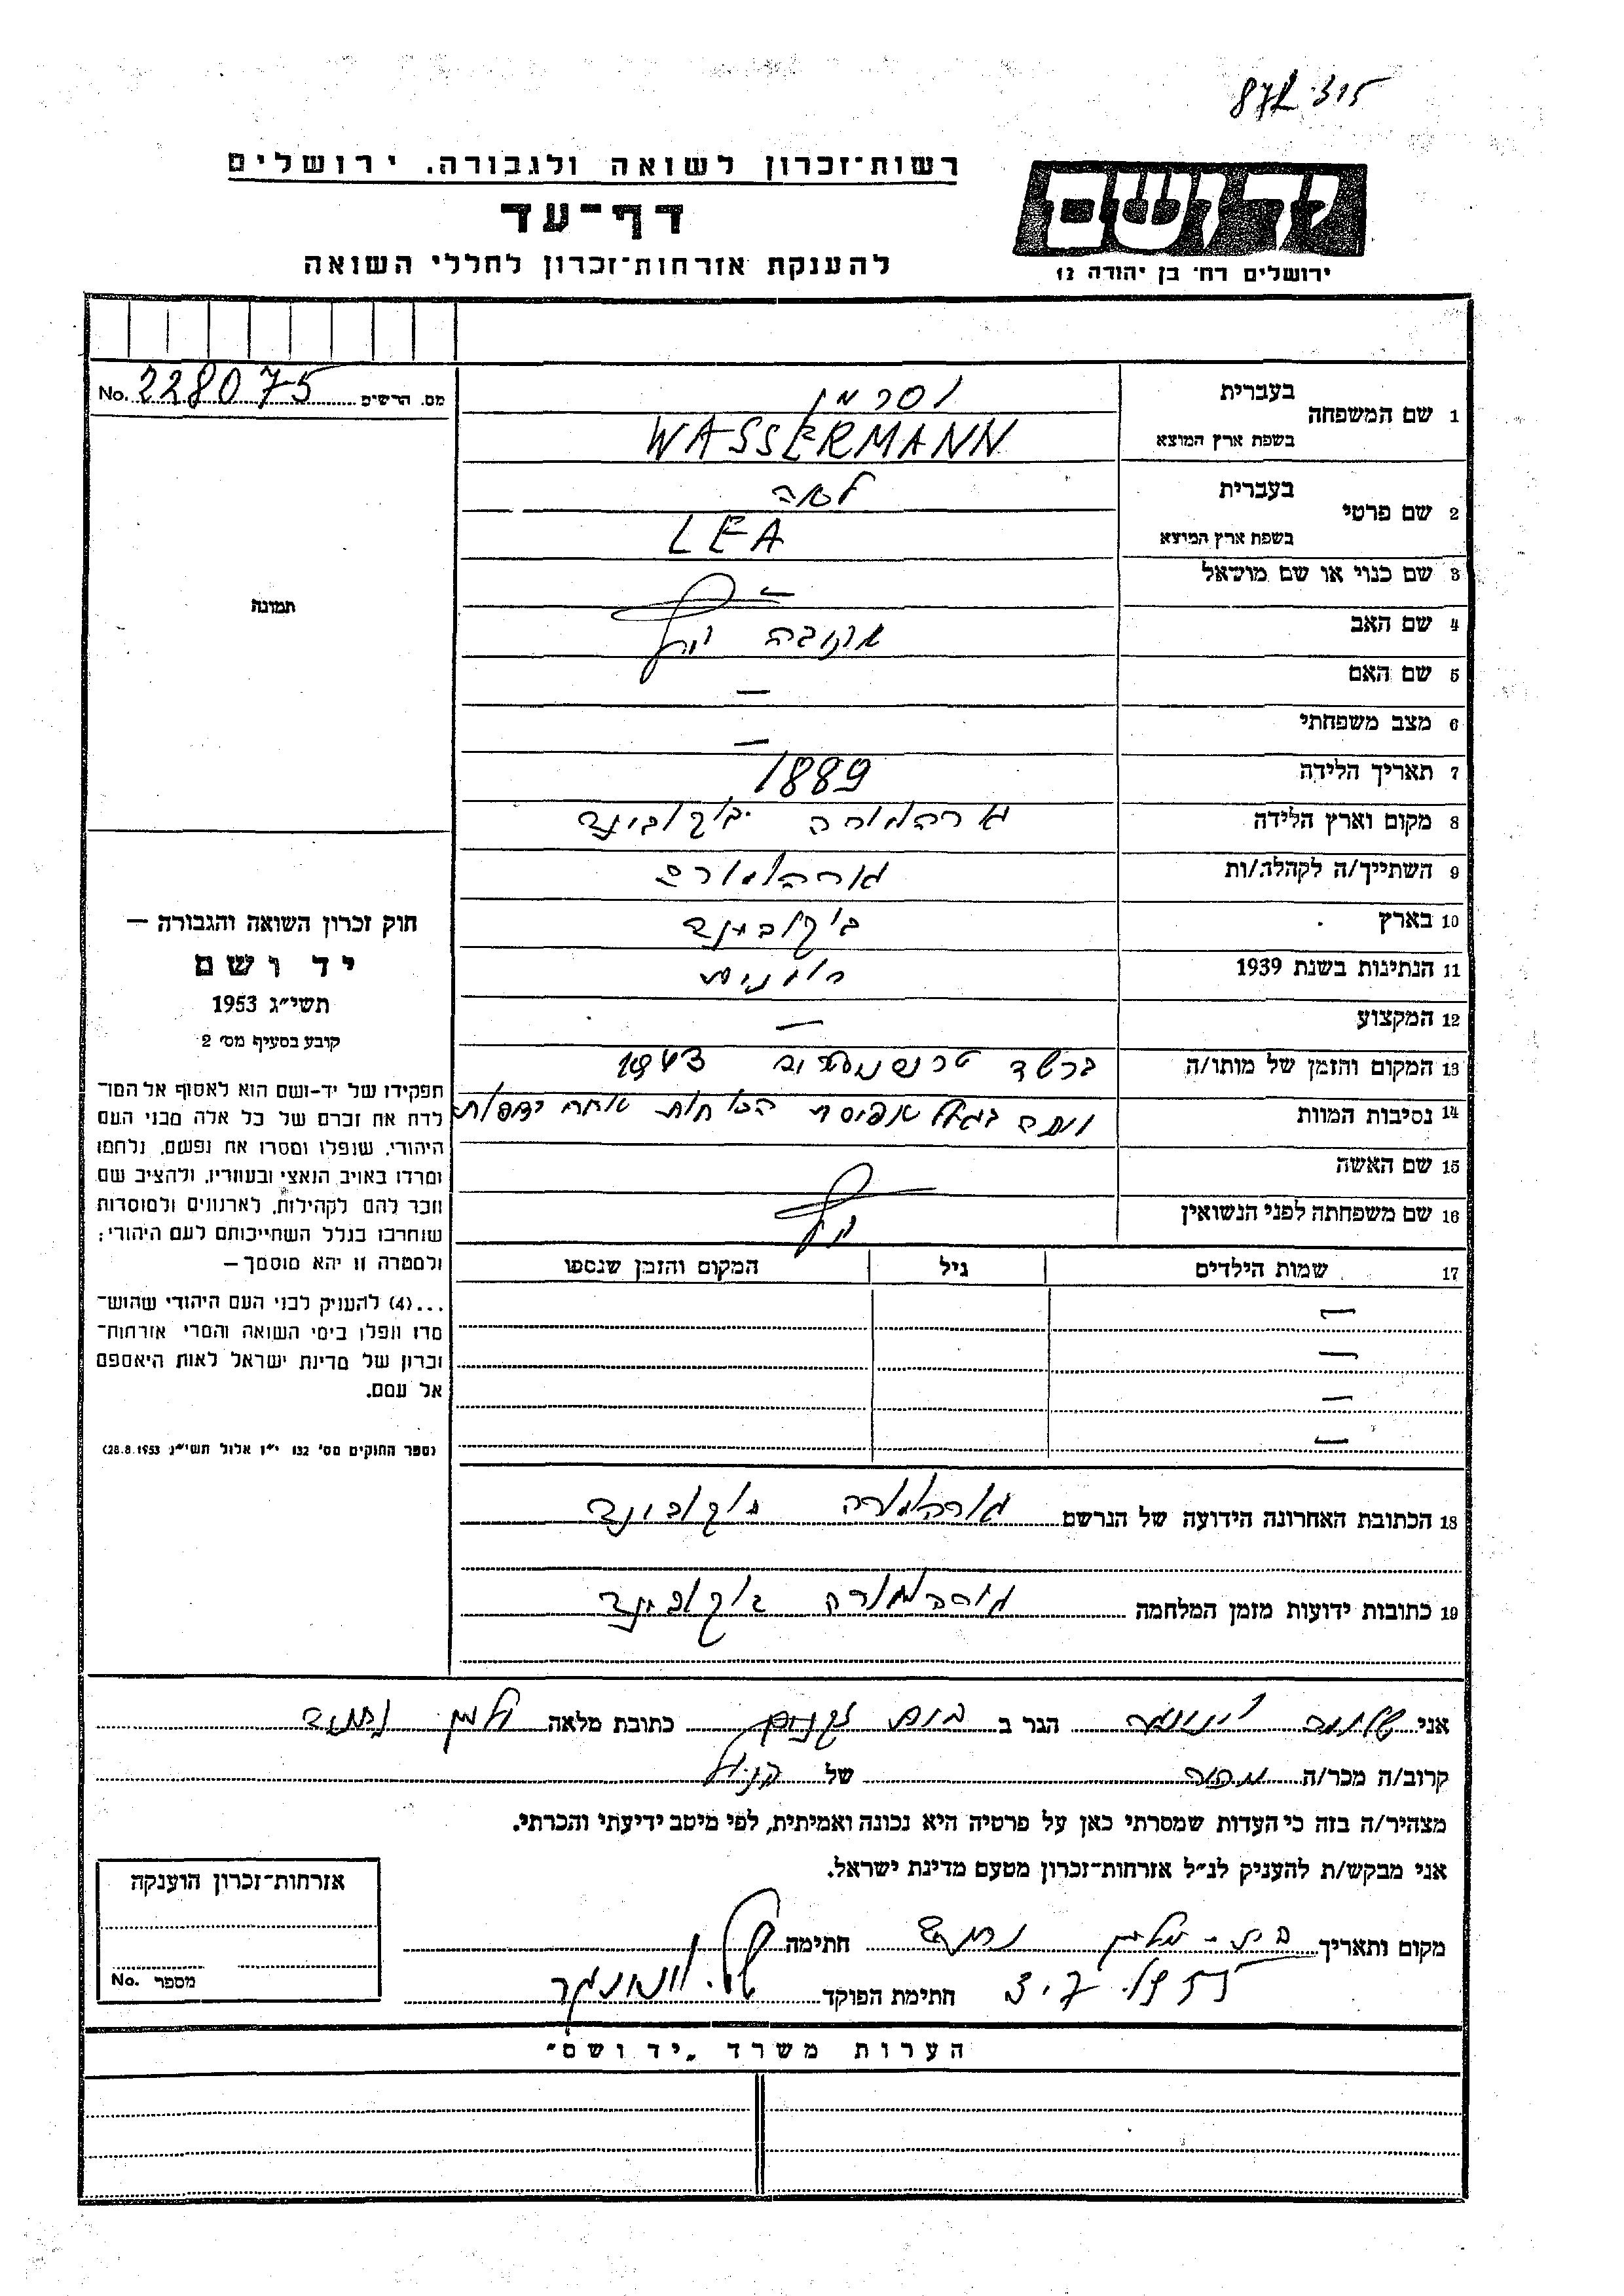 רשות־זכרון לשואה ולגבורה, ירושלים
דף־עד
להענקת אזרחות־זכרון לחללי השואה
יד ושם
ירושלים רח' בן יהודה 12
מס. הרשים No. 228075
1 שם המשפחה
בעברית וסרמן
בשפת ארץ המוצא WASSERMANN
2 שם פרטי
בעברית לאה
בשפת ארץ המוצא LEA
3 שם כנוי או שם מושאל
4 שם האב
5 שם האם –
6 מצב משפחתי –
7 תאריך הלידה 1889
8 מקום וארץ הלידה גורהומורה בוקובינה
9 השתייך/ה לקהלה/ות גורהומורה
10 בארץ בוקובינה
11 הנתינות בשנת 1939 רומנית
12 המקצוע –
13 המקום והזמן של מותו/ה ברשד טרנסניסטריה 1943
14 נסיבות המוות
15 שם האשה
16 שם משפחתה לפני הנשואין
17 שמות הילדים גיל המקום והזמן שנספו
–
–
–
–
18 הכתובת האחרונה הידועה של הנרשם גורהומורה בוקובינה
19 כתובות ידועות מזמן המלחמה גורהומורה בוקובינה
תמונה
חוק זכרון השואה והגבורה –
יד ושם
תשי״ג 1953
קובע בסעיף מס׳ 2
תפקידו של יד-ושם הוא לאסוף אל המו־
לדת את זכרם של כל אלה מבני העם
היהודי, שנפלו ומסרו את נפשם, נלחמו
ומרדו באויב הנאצי ובעוזריו, ולהציב שם
וזכר להם לקהילות, לארגונים ולמוסדות
שנחרבו בגלל השתייכותם לעם היהודי;
ולמטרה זו יהא מוסמך –
...(4) להעניק לבני העם היהודי שהוש־
מדו ונפלו בימי השואה והמרי אזרחות־
זכרון של מדינת ישראל לאות היאספם
אל עמם.
(ספר החוקים מס' 132 י״ז אלול תשי״ג 28.8.1953)
אני הגר ב בית זקנים כתובת מלאה
קרוב/ה מכר/ה של
מצהיר/ה בזה כי העדות שמסרתי כאן על פרטיה היא נכונה ואמיתית, לפי מיטב ידיעתי והכרתי.
אני מבקש/ת להעניק לנ״ל אזרחות־זכרון מטעם מדינת ישראל.
מקום ותאריך חתימה
חתימת הפוקד
אזרחות־זכרון הוענקה
מספר No.
הערות משרד „יד ושם״